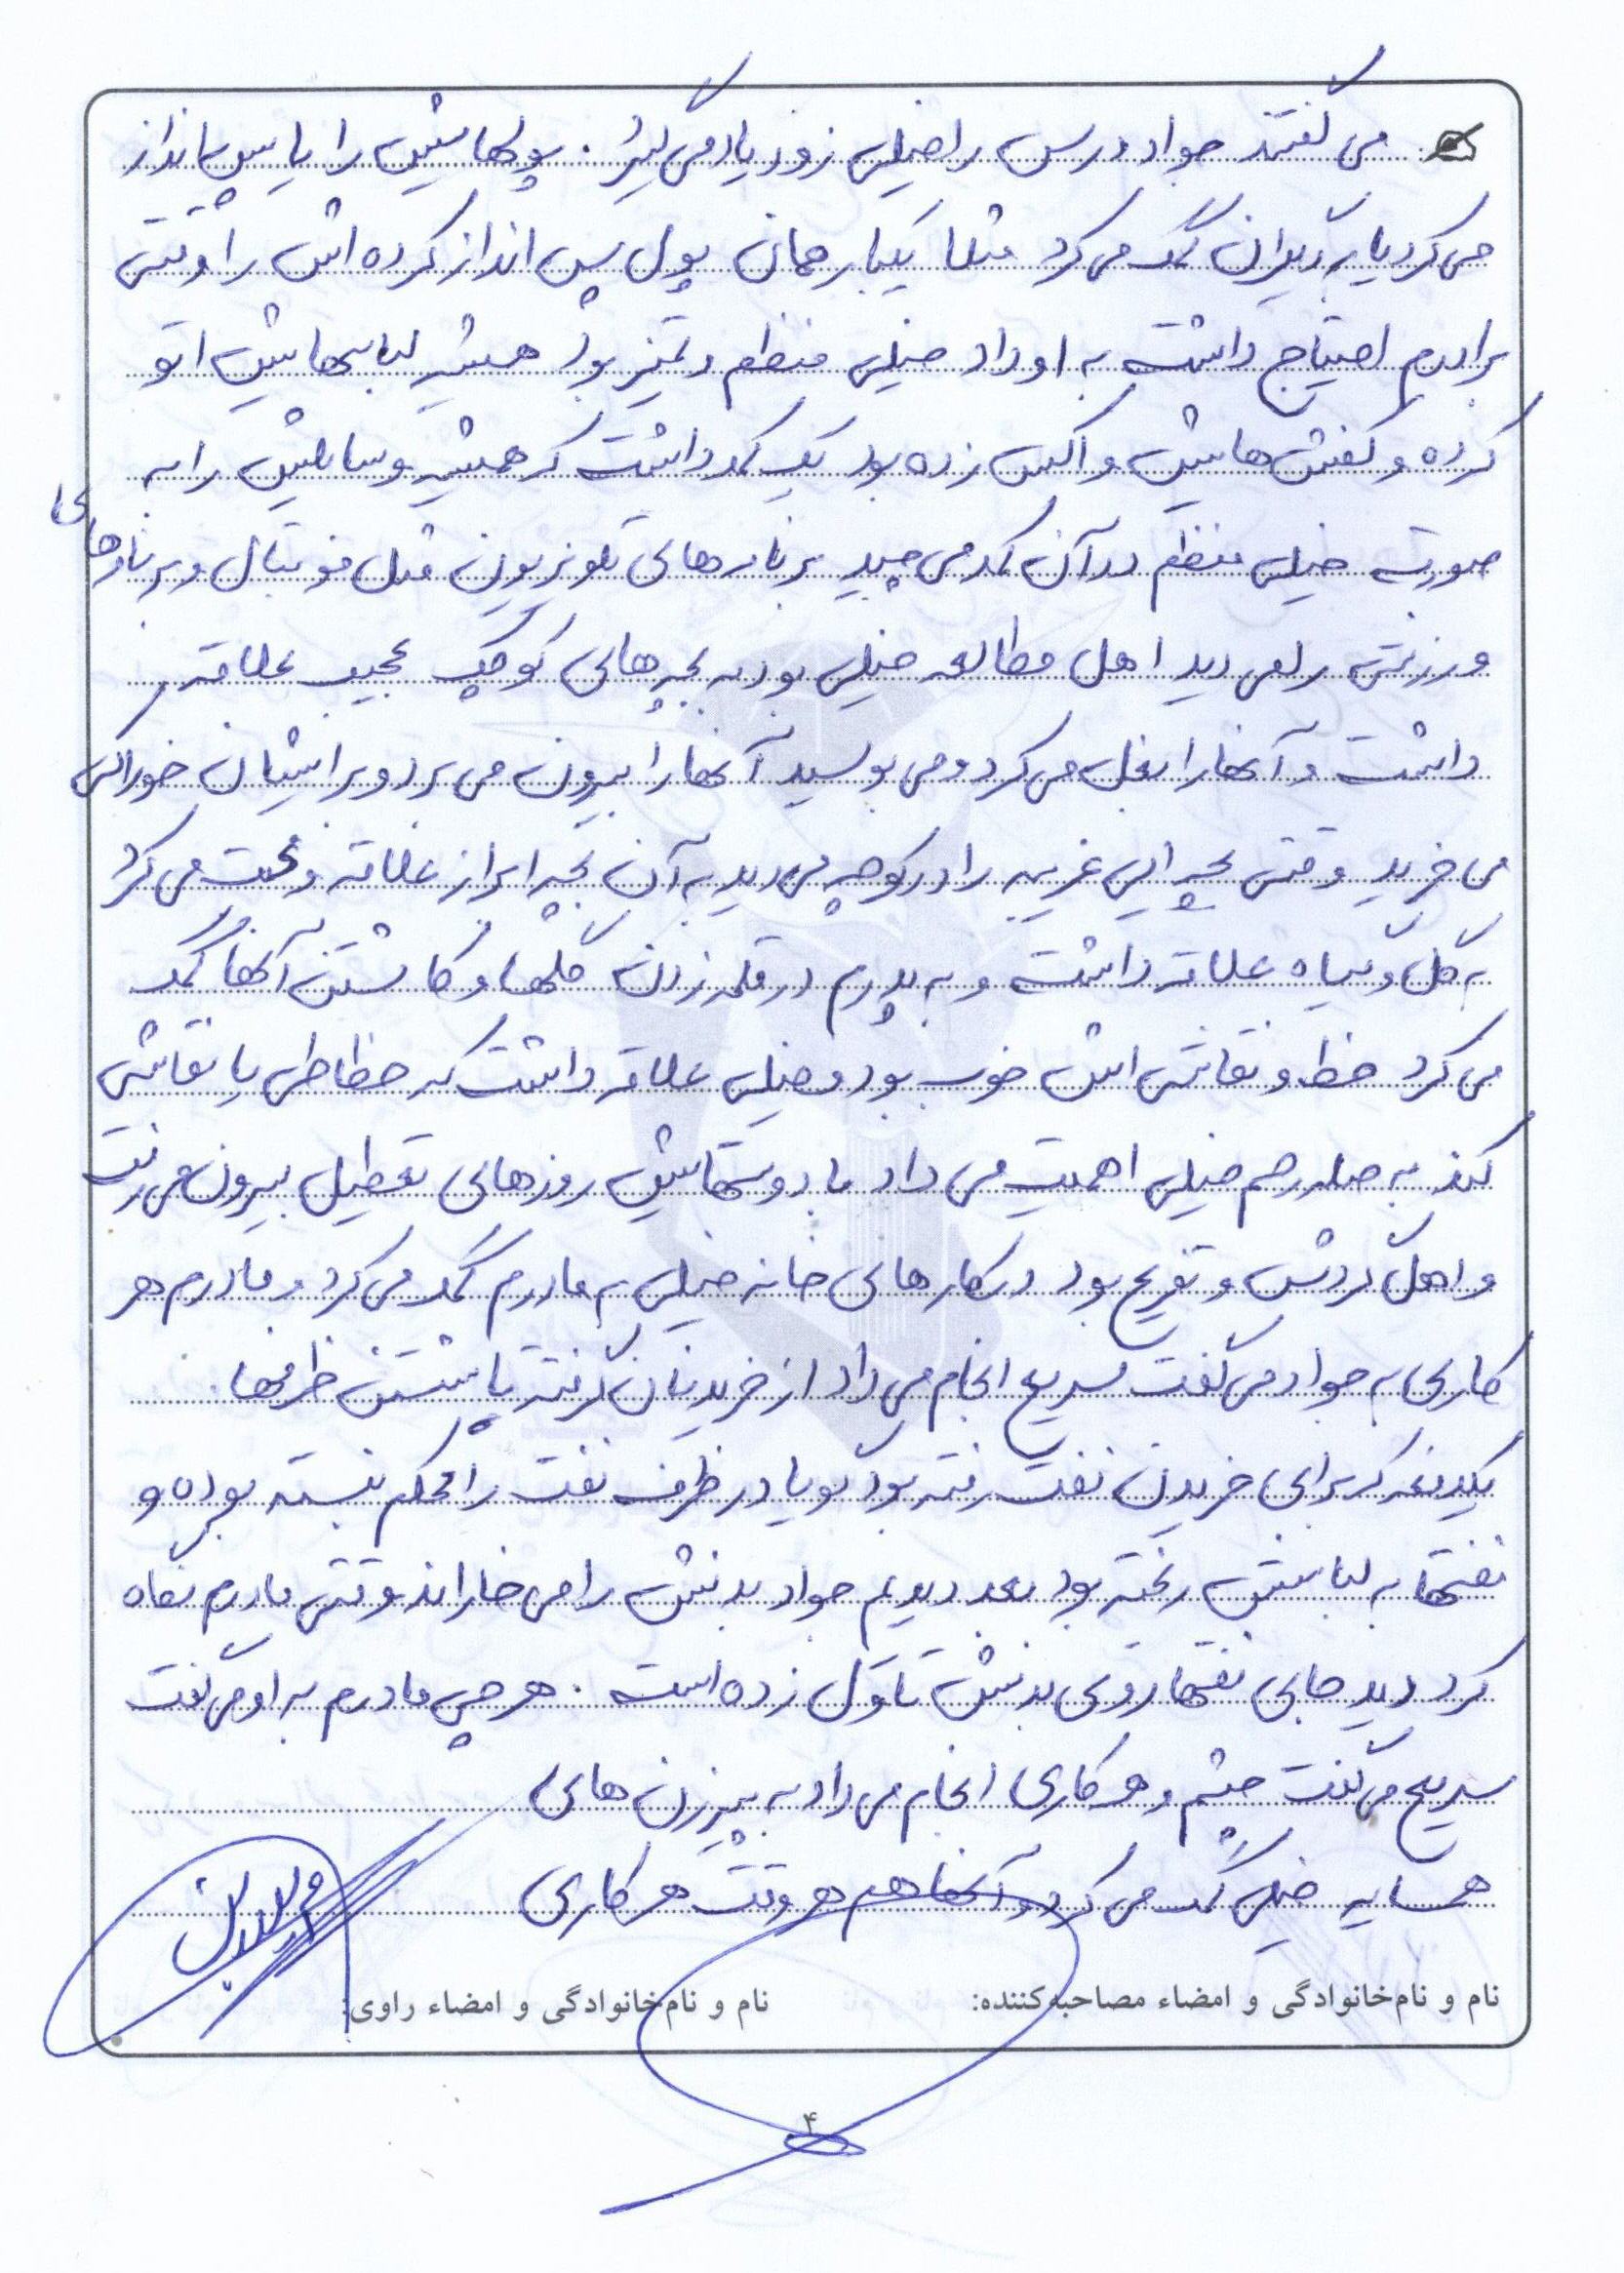 می گفتند جواد درس را خیلی زود یاد می گیرد. پولهایش را یا پس انداز
می کرد یا به دیگران کمک می کرد مثلا یکبار همان پول پس انداز کرده اش را وقتی
برادرم احتیاج داشت به او داد خیلی منظم و تمیز بود همیشه لباسهایش اتو
کرده و کفش هایش واکس زده بود یک کمد داشت که همیشه وسایلش را به
صورت خیلی منظم در آن کمد می چید برنامه های تلوزیون مثل فوتبال و برنامه های
ورزشی را می دید اهل مطالعه خیلی بود به بچه های کوچک عجیب علاقه
داشت و آنها را بغل می کرد و می بوسید آنها را بیرون می برد و برایشان خوراکی
می خرید وقتی بچه ایی غریبه را در کوچه می دید به آن بچه ابراز علاقه و محبت می کرد
به گل و گیاه علاقه داشت و به پدرم در قلمه زدن گلها و کاشتن آنها کمک
می کرد خط و نقاشی اش خوب بود و خیلی علاقه داشت که خطاطی یا نقاشی
کند به صله رحم خیلی اهمیت می داد با دوستهایش روزهای تعطیل بیرون می رفت
و اهل گردش و تفریح بود در کارهای خانه خیلی به مادرم کمک می کرد و مادرم هر
کاری به جواد می گفت سریع انجام می داد از خرید نان گرفته تا شستن ظرفها.
یکدفعه که برای خریدن نفت رفته بود گویا در ظرف نفت را محکم نبسته بوده و
نفتها به لباسش ریخته بود بعد دیدیم جواد بدنش را می خاراند وقتی مادرم نگاه
کرد دید جای نفتها روی بدنش تاول زده است. هر چی مادرم به او می گفت
سریع می گفت چشم و هر کاری انجام می داد به پیرزن های
همسایه خیلی کمک می کرد و آنها هم هر وقت هر کاری
نام و نام‌خانوادگی و امضاء مصاحبه‌کننده: نام و نام‌خانوادگی و امضاء راوی:
۴